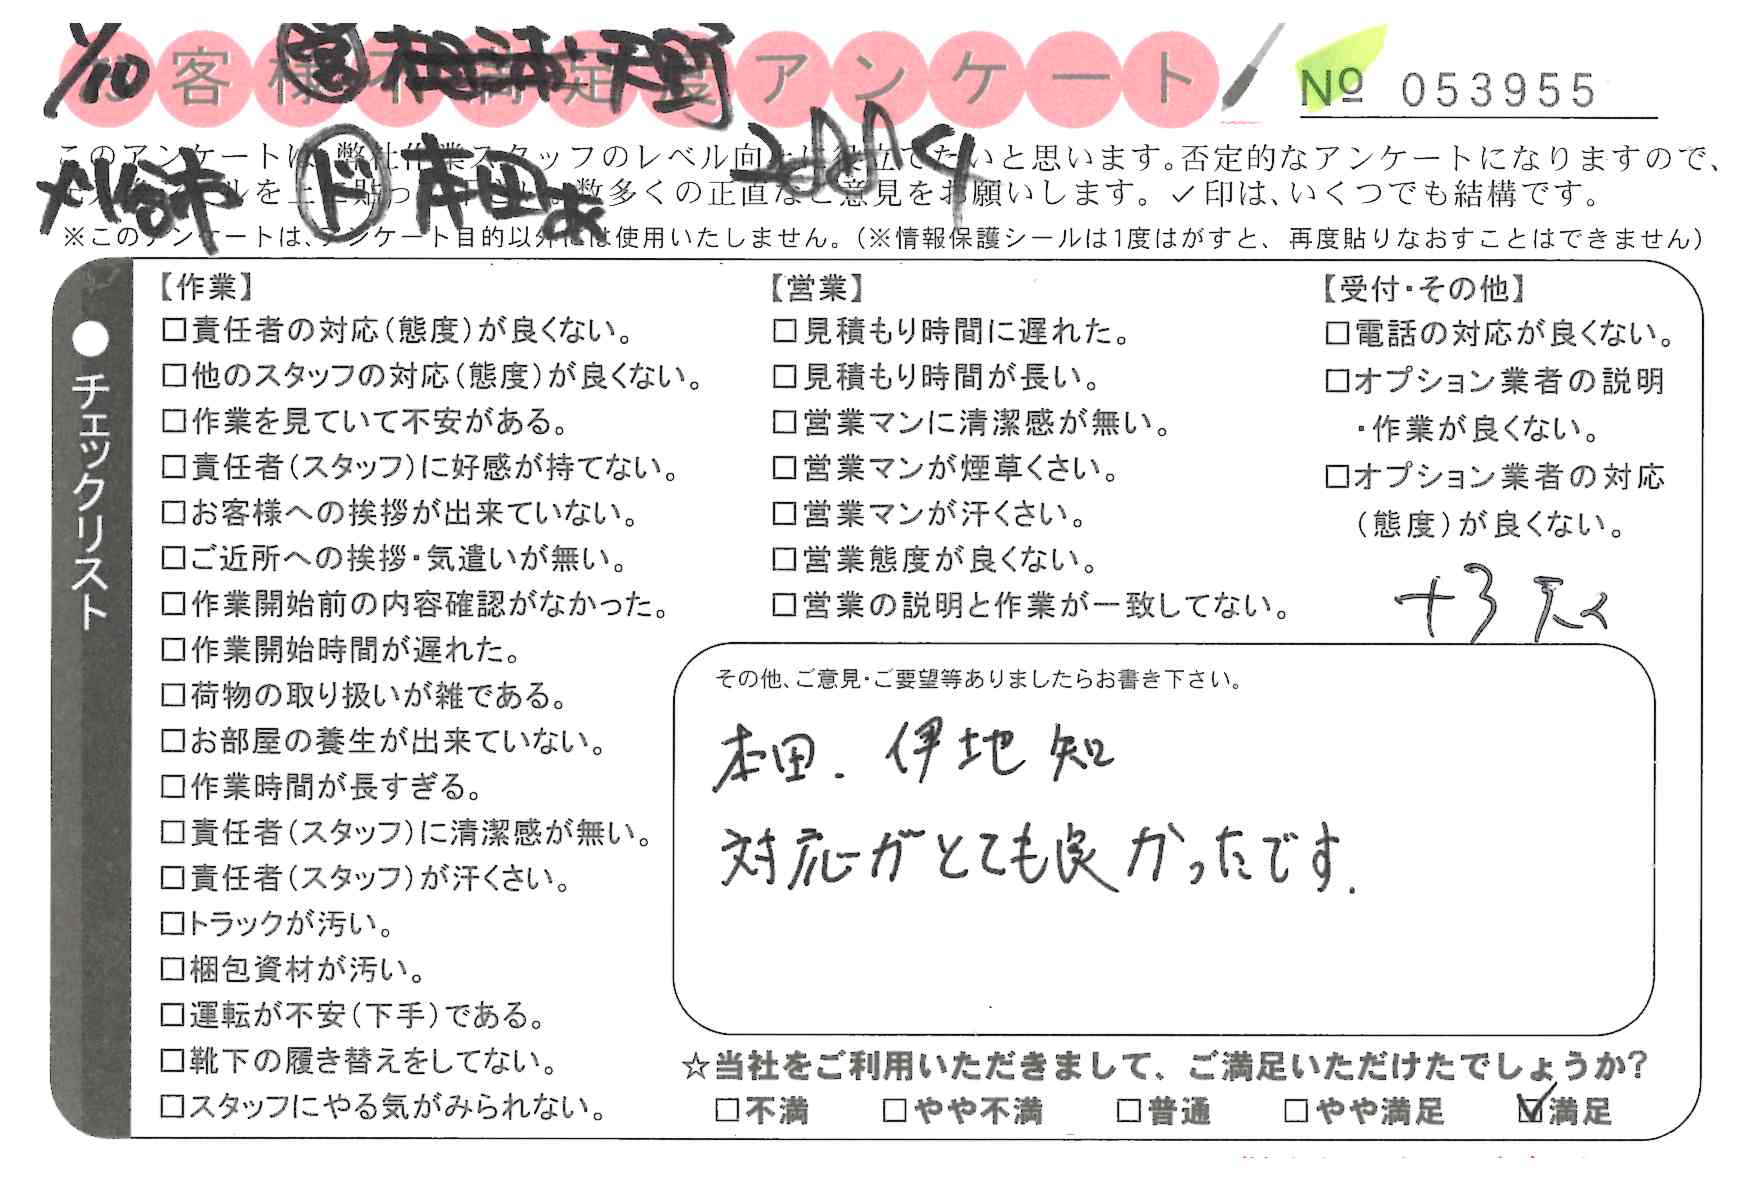 1/10
お客様不満足度アンケート
№ 053955
このアンケートは、弊社作業スタッフのレベル向上に役立てたいと思います。否定的なアンケートになりますので、
刈谷市 ド 本田
数多くの正直なご意見をお願いします。✓印は、いくつでも結構です。
※このアンケートは、アンケート目的以外には使用いたしません。(※情報保護シールは1度はがすと、再度貼りなおすことはできません)
●チェックリスト
【作業】
□責任者の対応(態度)が良くない。
□他のスタッフの対応(態度)が良くない。
□作業を見ていて不安がある。
□責任者(スタッフ)に好感が持てない。
□お客様への挨拶が出来ていない。
□ご近所への挨拶・気遣いが無い。
□作業開始前の内容確認がなかった。
□作業開始時間が遅れた。
□荷物の取り扱いが雑である。
□お部屋の養生が出来ていない。
□作業時間が長すぎる。
□責任者(スタッフ)に清潔感が無い。
□責任者(スタッフ)が汗くさい。
□トラックが汚い。
□梱包資材が汚い。
□運転が不安(下手)である。
□靴下の履き替えをしてない。
□スタッフにやる気がみられない。
【営業】
□見積もり時間に遅れた。
□見積もり時間が長い。
□営業マンに清潔感が無い。
□営業マンが煙草くさい。
□営業マンが汗くさい。
□営業態度が良くない。
□営業の説明と作業が一致してない。
【受付・その他】
□電話の対応が良くない。
□オプション業者の説明
・作業が良くない。
□オプション業者の対応
(態度)が良くない。
+3
その他、ご意見・ご要望等ありましたらお書き下さい。
本田. 伊地知
対応がとても良かったです.
☆当社をご利用いただきまして、ご満足いただけたでしょうか?
□不満 □やや不満 □普通 □やや満足 ☑満足